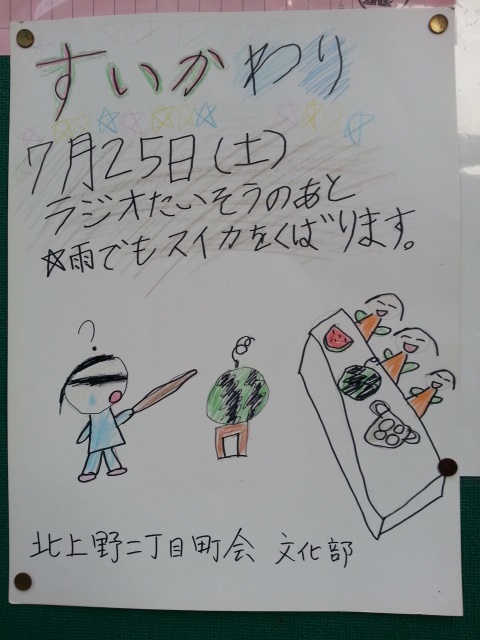 すいかわり
7月25日(土)
ラジオたいそうのあと
☆雨でもスイカをくばります。
?
北上野二丁目町会 文化部